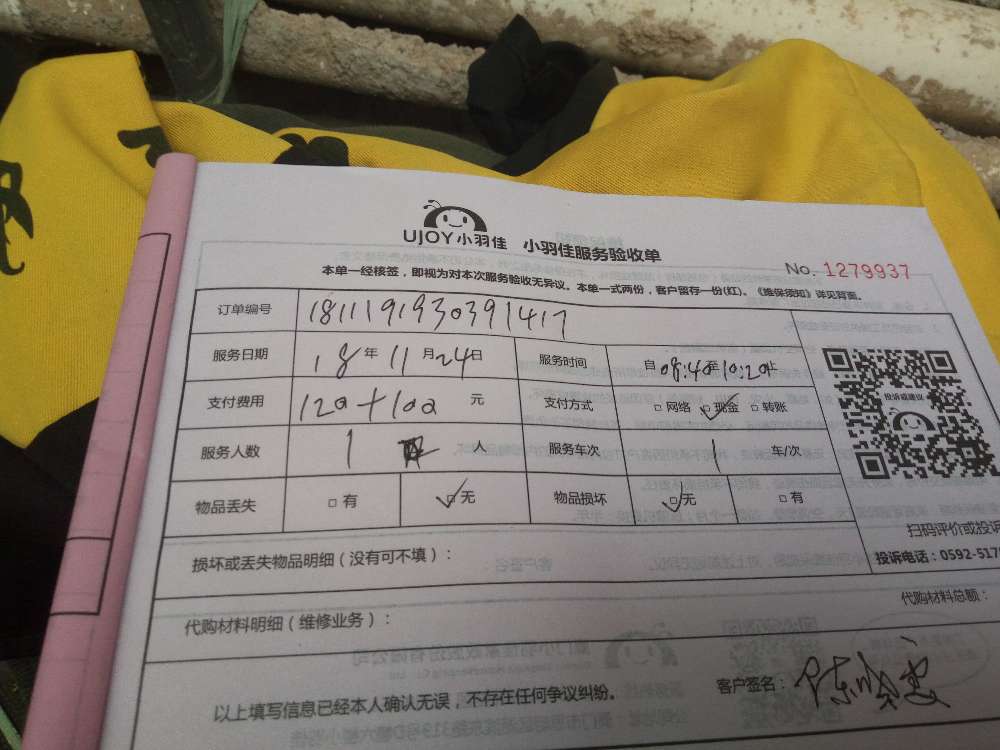 UJOY小羽佳 小羽佳服务验收单
No. 1279937
本单一经核签,即视为对本次服务验收无异议。本单一式两份,客户留存一份(红)。《维保须知》详见背面。
订单编号 1811191930391417
服务日期 18年11月24日 服务时间 自08:40至10:20止
支付费用 120+100 元 支付方式 □网络 ☑现金 □转账
服务人数 1 人 服务车次 1 车/次
物品丢失 □有 ☑无 物品损坏 ☑无 □有
投诉或建议
扫码评价或投诉
投诉电话:0592-517
损坏或丢失物品明细(没有可不填):
代购材料明细(维修业务): 代购材料总额:
以上填写信息已经本人确认无误,不存在任何争议纠纷。 客户签名: